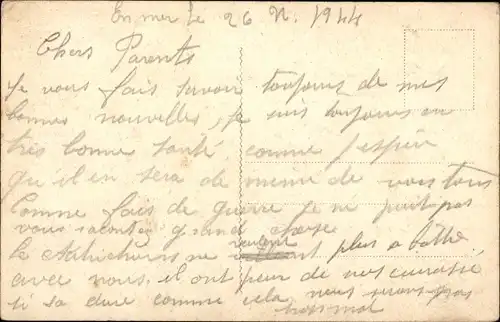 En mer le 26 N. 1944
Chers Parents
Je vous fais savoir toujours de mes
bonnes nouvelles, je suis toujours en
très bonne santé comme j'espère
qu'il en sera de même de vous tous
Comme fais de guerre je ne puit pas
vous raconter grand chose
le ne veulent plus a battre
avec nous. il ont peur de nos
si sa dure comme cela nous pas